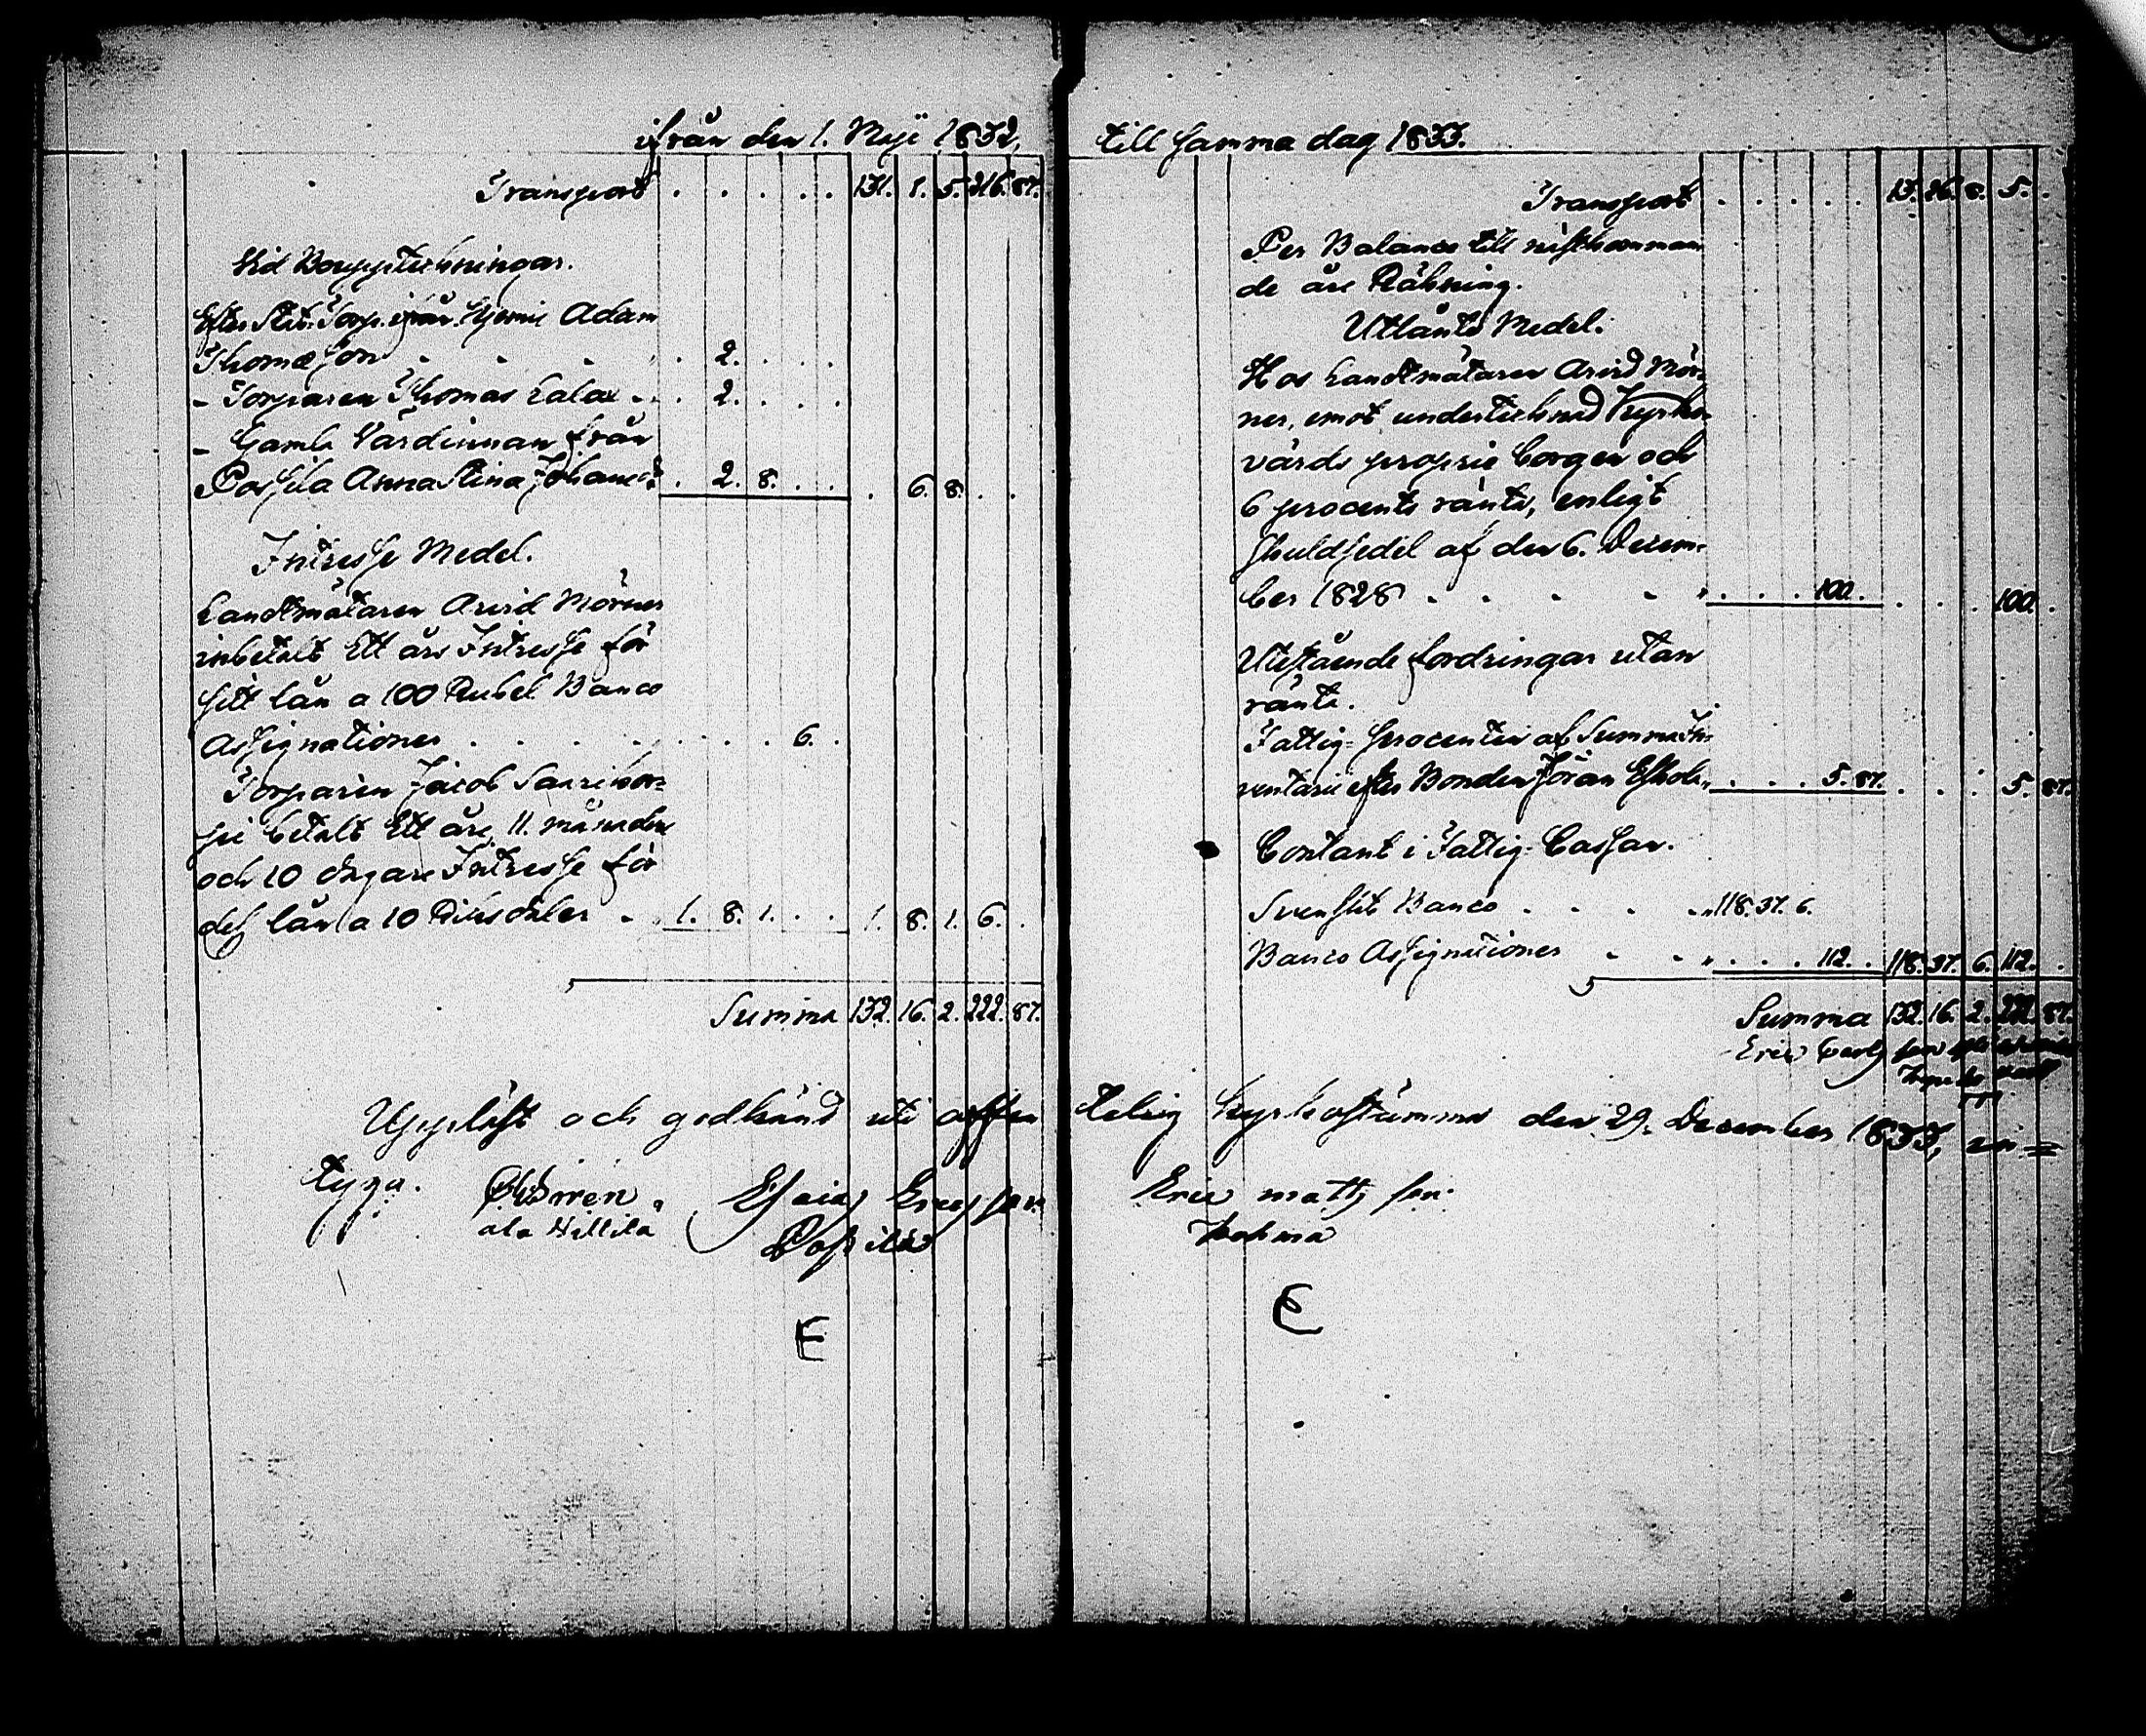 ifrån den 1. Maji 1832,
Transport . . . . . 131. 1. 5. 216. 87.
Vid Bouppteckningar.
Efter Torp. ifrån Adam
Thomæson . . . . 2. . . .
- Torparen Thomas Lalax . . 2. . . .
- Gamla Värdinnan från
Possila Anna Stina Johansd: . 2. 8. . . . 6. 8. . .
Intresse Medel.
Landtmätaren Arvid Mörner
inbetalt Ett års Intresse för
sitt lån a 100 Rubel Banco
Assignationer . . . . . . . . 6. .
Torparen Jacob
betalt Ett års, 11. månaders
och 10 dagars Intresse för
dess lån a 10 Riksdaler . 1. 8. 1. . . 1. 8. 1. 6. .
Summa 132. 16. 2. 222. 87.
till samma dag 1833.
Transport . . . . . 13. 26. 8. 5. .
Per Balance till nästkomman
de års Räkning.
Utlånte Medel.
Hos Landtmätaren Arvid Mör-
ner, emot undertecknad Kyrko-
värds proprie borgen och
6 procents ränta, enligt
skuldsedel af den 6. Decem-
ber 1828 . . . . . . . 100. . . . . 100. .
Utestående fordringar utan
ränta.
Fattig-procenten af Summa In-
ventarii efter Bonden Jöran . . . 5. 87. . . . 5. 87.
Contant i Fattig-Cassan.
Svenskt Banco . . . . 118. 37. 6.
Banco Assignationer . . . . . 112. . 118. 37. 6. 112. .
Summa 132. 16. 2. 222. 87.
Eric Carlsson
Uppläst och godkänd uti offen teleig kyrkostämma den 29. December 1833,
tyga.
Esaias Ericsson Eric Matts son
ala Hiltila Possila Kohma
E E